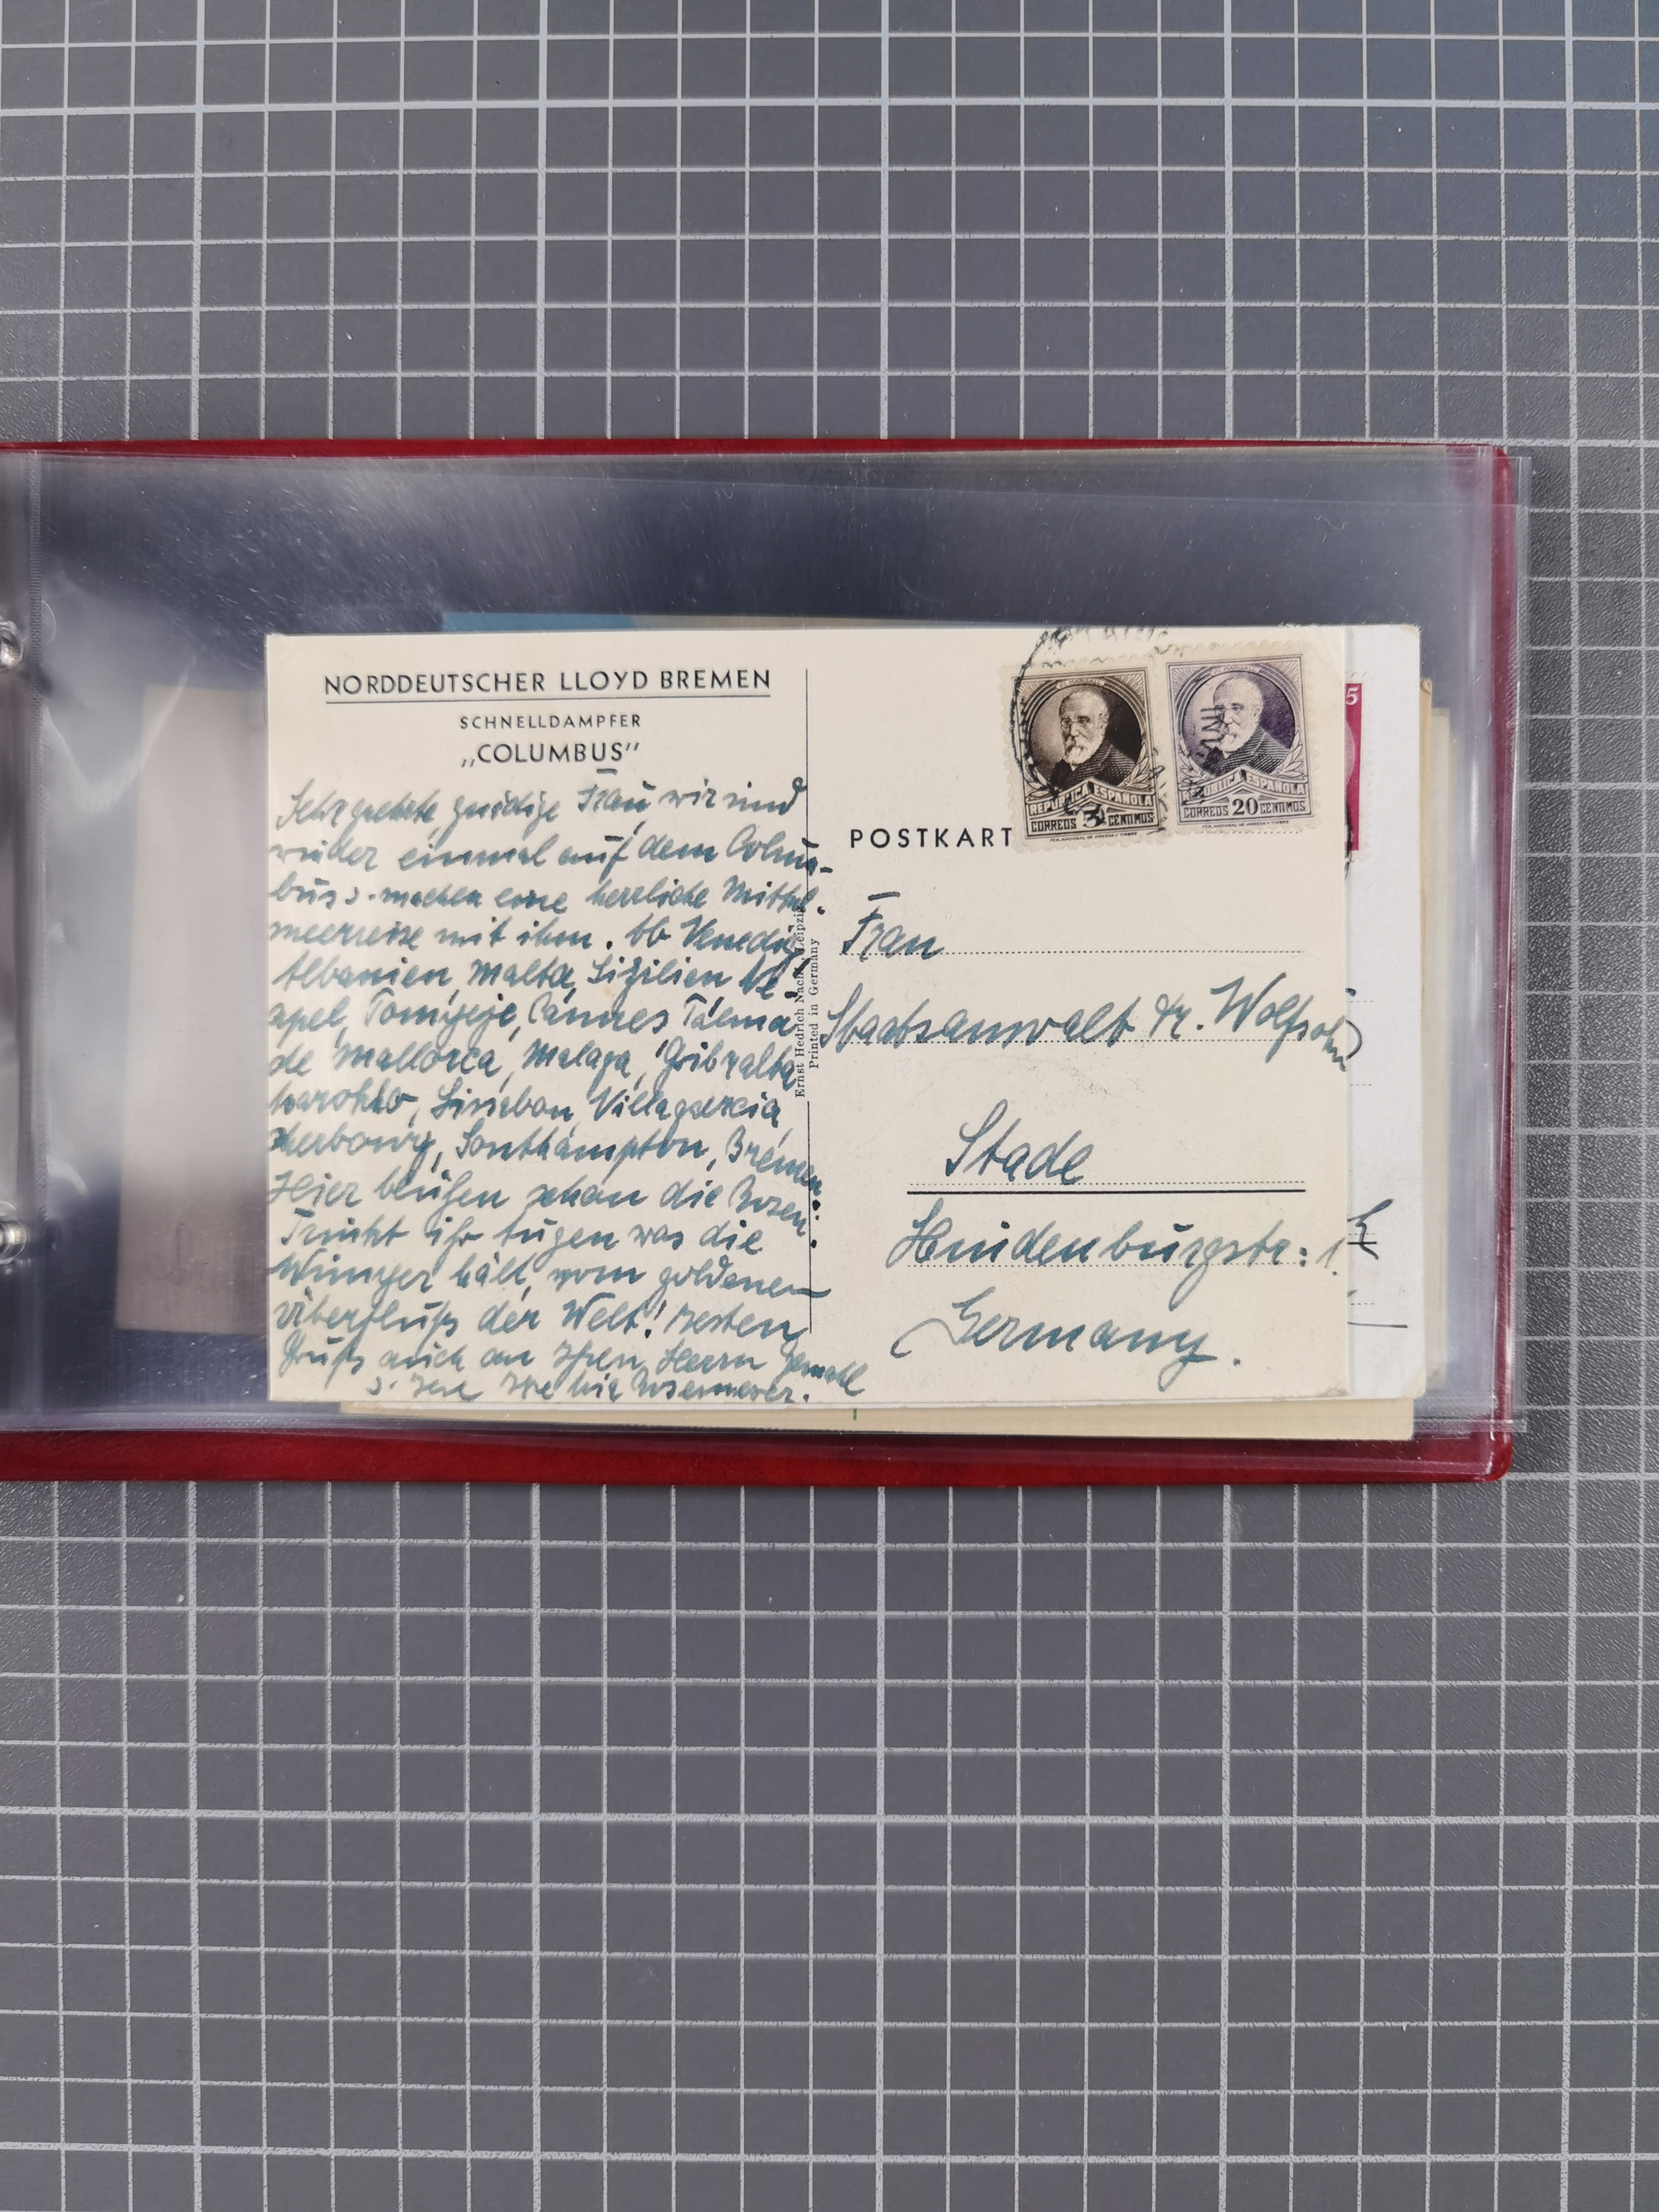 NORDDEUTSCHER LLOYD BREMEN
SCHNELLDAMPFER
„COLUMBUS"
Sehr geehrte, gnädige Frau, wir sind
wieder einmal auf dem Colum-
bus u. machen eine herrliche Mittel-
meerreise mit ihm. Ab Venedig
Albanien, Malta, Sizilien Ne-
apel, Cannes Palma
de Mallorca, Malaga, Gibralta
Marokko, Lissabon, Villagarcia,
Cherbourg, Southampton, Bremen
Hier blühen schon die Rosen
Trinkt ihr Augen was die
Wimper hält, vom goldenen
Überfluß der Welt! Besten
Gruß auch an Ihren Herrn Gemahl
Ernst Hedrich Nachf. Leipzig
Printed in Germany
POSTKART
REPUBLICA ESPAÑOLA
CORREOS 5 CENTIMOS
REPUBLICA ESPAÑOLA
CORREOS 20 CENTIMOS
Frau
Staatsanwalt Dr. Wolfsohn
Stade
Hindenburgstr: 1.
Germany.
5